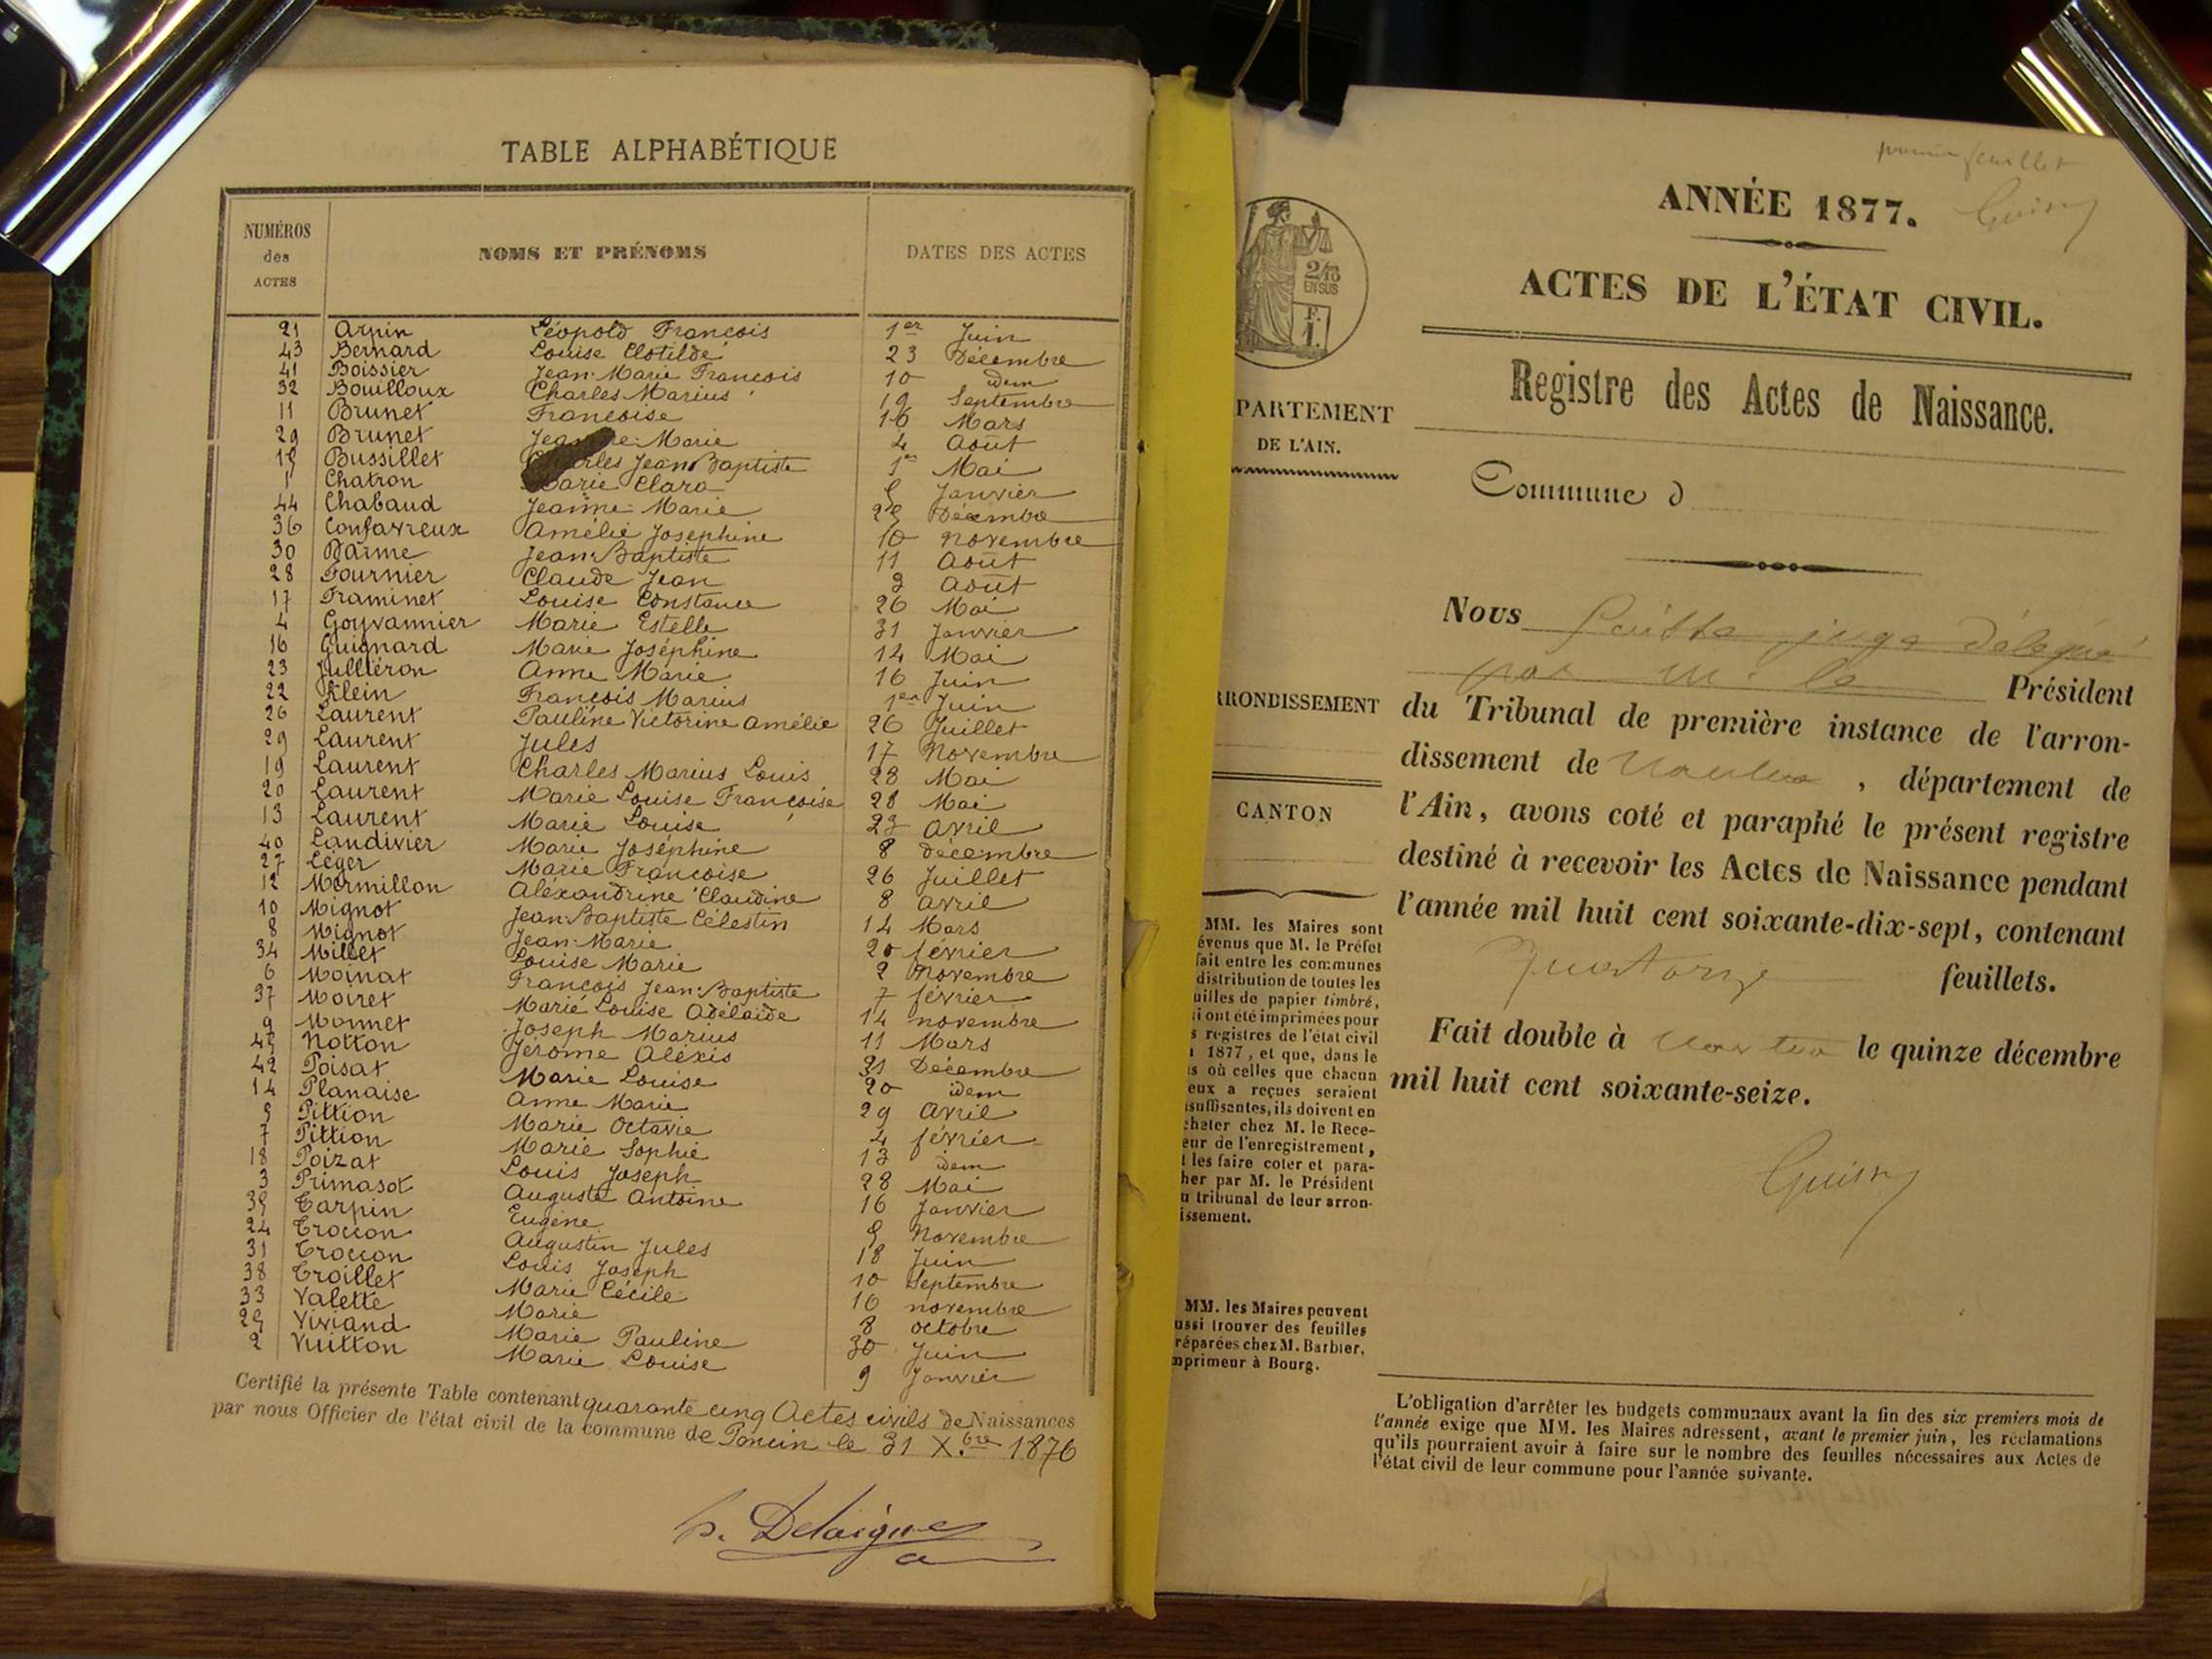 TABLE ALPHABÉTIQUE
NUMÉROS des ACTES NOMS ET PRÉNOMS DATES DES ACTES
21 Arpin Léopold François 1er Juin
43 Bernard Louise Clotilde 23 Décembre
41 Boissier Jean-Marie François 10 idem
32 Bouilloux Charles Marius 19 Septembre
11 Brunet Françoise 16 Mars
29 Brunet Jeanne-Marie 4 Août
15 Bussillet Charles Jean Baptiste 1er Mai
1 Chatron Marie Clara 5 Janvier
44 Chabaud Jeanne-Marie 25 Décembre
36 Confavreux Amélie Joséphine 10 novembre
30 Darme Jean-Baptiste 11 Août
28 Fournier Claude Jean 3 Août
17 Framinet Louise Constance 26 Mai
4 Goyvannier Marie Estelle 31 Janvier
16 Guignard Marie Joséphine 14 Mai
23 Julliéron Anne Marie 16 Juin
22 Klein François Marius 1er Juin
26 Laurent Pauline Victorine Amélie 26 Juillet
29 Laurent Jules 17 Novembre
19 Laurent Charles Marius Louis 28 Mai
20 Laurent Marie Louise Françoise 28 Mai
13 Laurent Marie Louise 23 avril
40 Landivier Marie Joséphine 8 décembre
27 Léger Marie Françoise 26 Juillet
12 Mermillon Aléxandrine Claudine 8 avril
10 Mignot Jean-Baptiste Célestin 14 Mars
8 Mignot Jean-Marie 20 février
34 Millet Louise Marie 2 novembre
6 Moinat François Jean-Baptiste 7 février
37 Moiret Marie Louise Adélaïde 14 novembre
9 Monnet Joseph Marius 11 Mars
45 Notton Jérome Aléxis 31 Décembre
42 Poisat Marie Louise 20 idem
14 Planaise Anne Marie 29 Avril
5 Pittion Marie Octavie 4 février
7 Pittion Marie Sophie 13 idem
18 Poizat Louis Joseph 28 Mai
3 Primasot Auguste Antoine 16 Janvier
35 Tarpin Eugène 5 Novembre
24 Troccon Augustin Jules 18 Juin
31 Troccon Louis Joseph 10 Septembre
38 Troillet Marie Cécile 16 novembre
33 Valette Marie 8 octobre
25 Viviand Marie Pauline 30 Juin
2 Vuitton Marie Louise 9 Janvier
Certifié la présente Table contenant quarante cinq Actes civils de Naissances
par nous Officier de l'état civil de la commune de Poncin le 31 X.bre 1876
Delaigue
premier feuillet
ANNÉE 1877.
2/10 EN SUS
F. 1.
ACTES DE L'ÉTAT CIVIL.
Registre des Actes de Naissance.
PARTEMENT
DE L'AIN.
Commune d
Nous juge délégué
par M. le Président
RRONDISSEMENT
du Tribunal de première instance de l'arron-
dissement de Nantua, département de
l'Ain, avons coté et paraphé le présent registre
CANTON
destiné à recevoir les Actes de Naissance pendant
l'année mil huit cent soixante-dix-sept, contenant
Quatorze feuillets.
Fait double à Nantua le quinze décembre
mil huit cent soixante-seize.
MM. les Maires sont
évenus que M. le Préfet
fait entre les communes
distribution de toutes les
uilles de papier timbré,
i ont été imprimées pour
s registres de l'état civil
1877, et que, dans le
s où celles que chacun
eux a reçues seraient
suffisantes, ils doivent en
cheter chez M. le Rece-
eur de l'enregistrement,
t les faire coter et para-
her par M. le Président
u tribunal de leur arron-
issement.
MM. les Maires peuvent
ussi trouver des feuilles
réparées chez M. Barbier,
mprimeur à Bourg.
L'obligation d'arrêter les budgets communaux avant la fin des six premiers mois de
l'année exige que MM. les Maires adressent, avant le premier juin, les réclamations
qu'ils pourraient avoir à faire sur le nombre des feuilles nécessaires aux Actes de
l'état civil de leur commune pour l'année suivante.